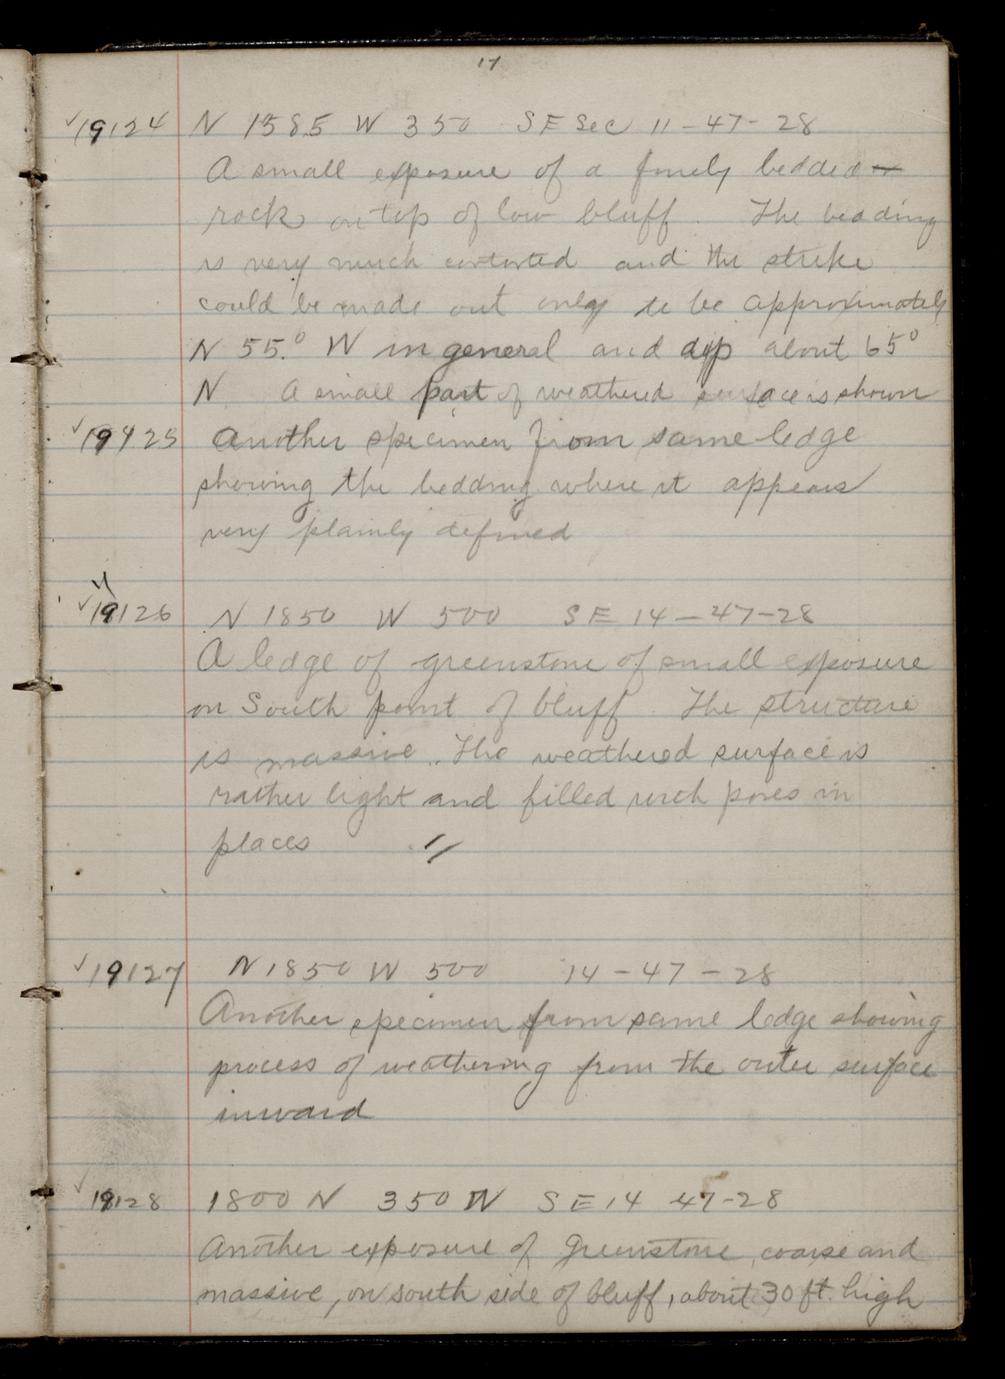 17
19124 N 1585 W 350 SE Sec 11-47-28
A small exposure of a finely bedded
rock on top of low bluff. The bedding
is very much contorted and the strike
could be made out only to be approximately
N 55.° W in general and dip about 65°
N A small part of weathered surface is shown
19425 Another specimen from same ledge
showing the bedding where it appears
very plainly defined
19126 N 1850 W 500 SE 14-47-28
A ledge of greenstone of small exposure
on South point of bluff. The structure
is massive. The weathered surface is
rather light and filled with pores in
places
19127 N 1850 W 500 14-47-28
Another specimen from same ledge showing
process of weathering from the outer surface
inward
19128 1800 N 350 W SE 14 47-28
Another exposure of greenstone, coarse and
massive, on south side of bluff, about 30 ft. high